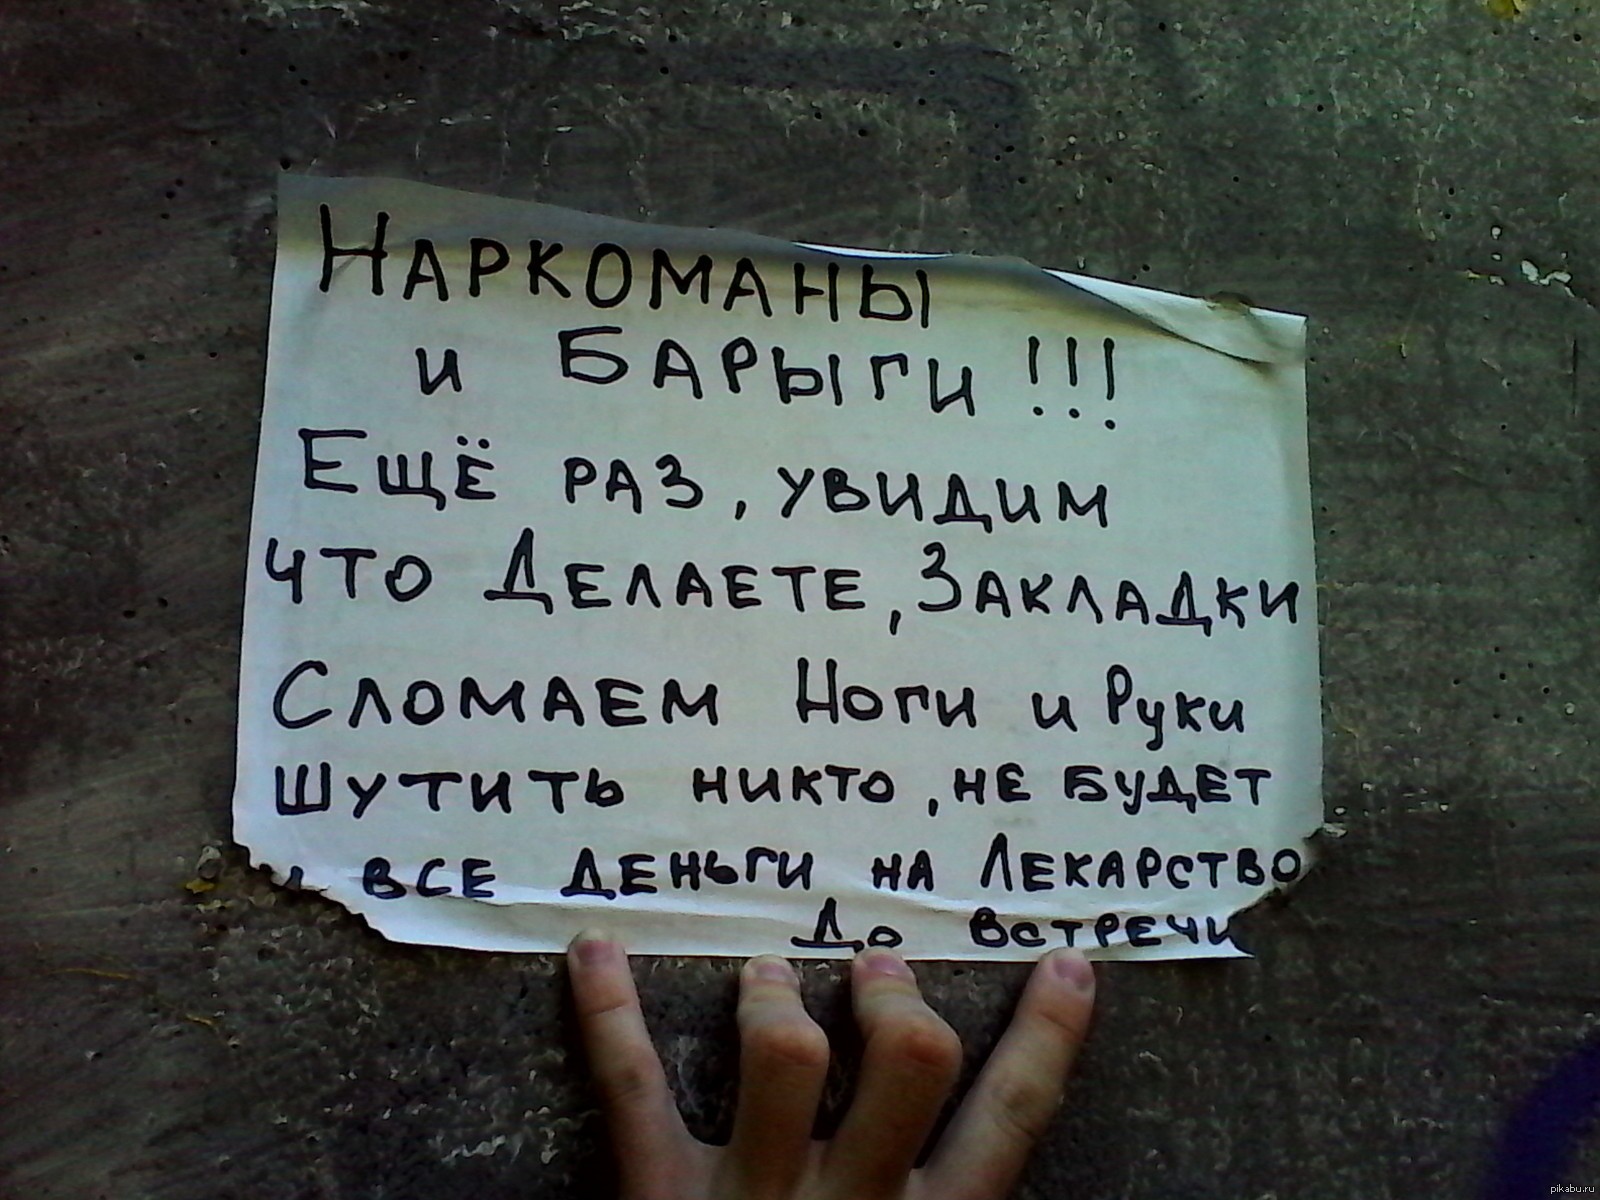 НАРКОМАНЫ
и БАРЫГИ!!!
ЕЩЁ РАЗ, УВИДИМ
ЧТО ДЕЛАЕТЕ, ЗАКЛАДКИ
СЛОМАЕМ НОГИ и РУКИ
ШУТИТЬ НИКТО, НЕ БУДЕТ
ВСЕ ДЕНЬГИ НА ЛЕКАРСТВО
ДО ВСТРЕЧИ
pikabu.ru